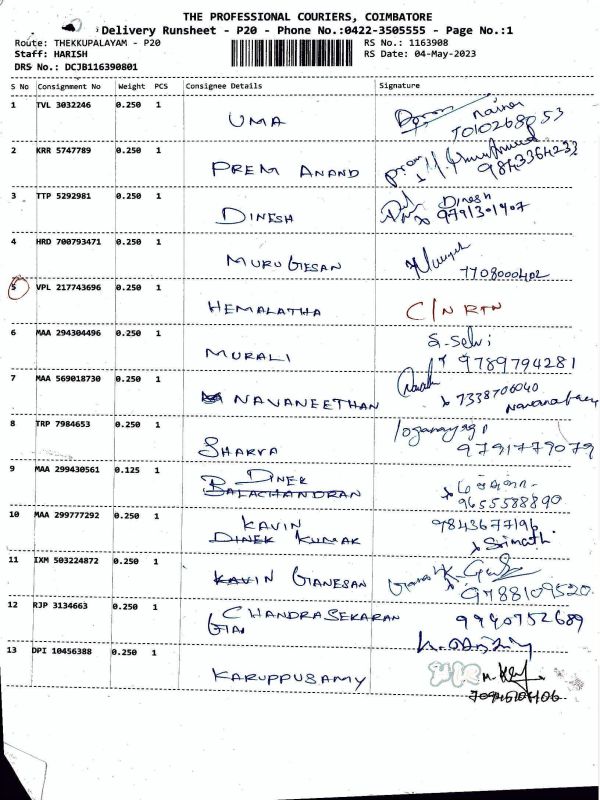 THE PROFESSIONAL COURIERS, COIMBATORE
Delivery Runsheet - P20 - Phone No.:0422-3505555 - Page No.:1
Route: THEKKUPALAYAM - P20 RS No.: 1163908
Staff: HARISH RS Date: 04-May-2023
DRS No.: DCJB116390801
S No Consignment No Weight PCS Consignee Details Signature
1 TVL 3032246 0.250 1 UMA
2 KRR 5747789 0.250 1 PREM ANAND 9843364233
3 TTP 5292981 0.250 1 DINESH Dinesh
9791301907
4 HRD 700793471 0.250 1 MURUGESAN
7708000402
5 VPL 217743696 0.250 1 HEMALATHA C/N RTN
6 MAA 294304496 0.250 1 MURALI S. Selvi
9789794281
7 MAA 569018730 0.250 1 NAVANEETHAN 7338706040
8 TRP 7984653 0.250 1 SHARVA
9791779079
9 MAA 299430561 0.125 1 DINEK
BALACHANDRAN 9655588890
10 MAA 299777292 0.250 1 KAVIN 9843677196
DINEK KUMAR Srimathi
11 IXM 503224872 0.250 1 KAVIN GANESAN
9788109520
12 RJP 3134663 0.250 1 CHANDRASEKARAN 9940752689
13 DPI 10456388 0.250 1 KARUPPUSAMY